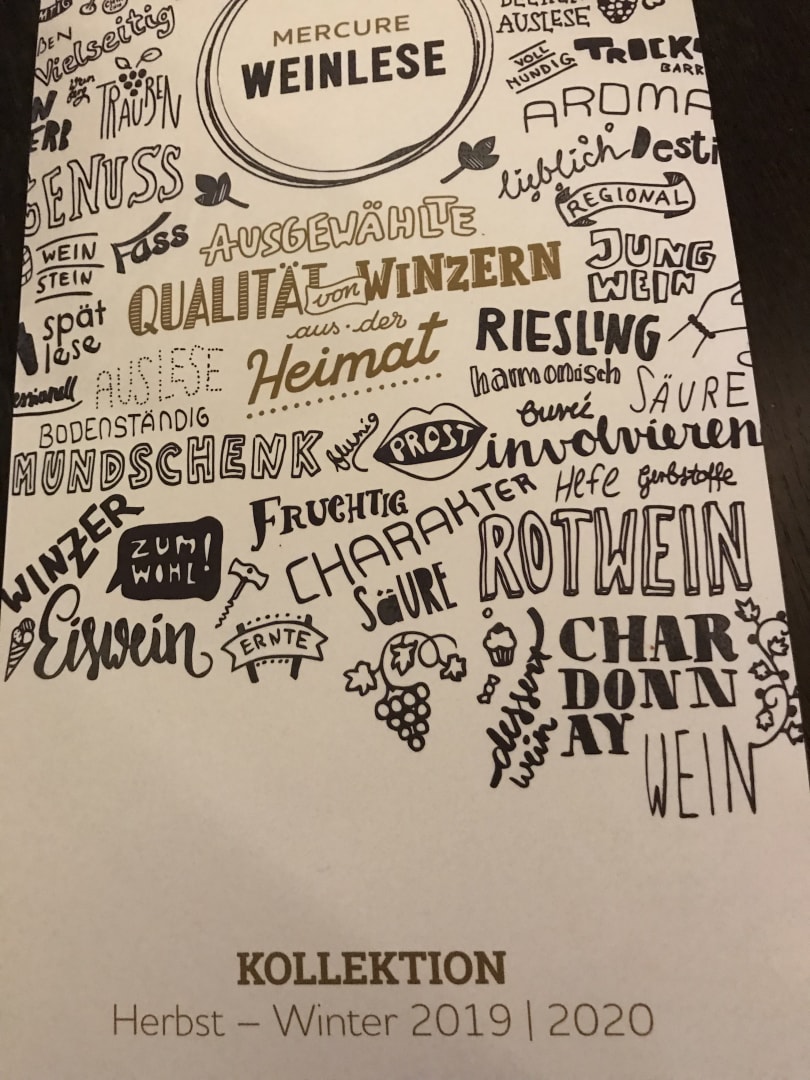 Vielseitig
MERCURE
WEINLESE
AUSLESE
VOLL
MUNDIG
TRAUBEN
AROMA
lieblich
GENUSS
REGIONAL
WEIN
STEIN
Fass
AUSGEWÄHLTE
JUNG
WEIN
QUALITÄT von WINZERN
aus der
Heimat
spät
lese
RIESLING
AUSLESE
harmonisch
SÄURE
BODENSTÄNDIG
MUNDSCHENK
blumig
PROST
involvieren
Hefe
Gerbstoffe
WINZER
ZUM
WOHL!
FRUCHTIG
CHARAKTER
SÄURE
ROTWEIN
Eiswein
ERNTE
dessert
wein
CHAR
DONN
AY
WEIN
KOLLEKTION
Herbst – Winter 2019 | 2020